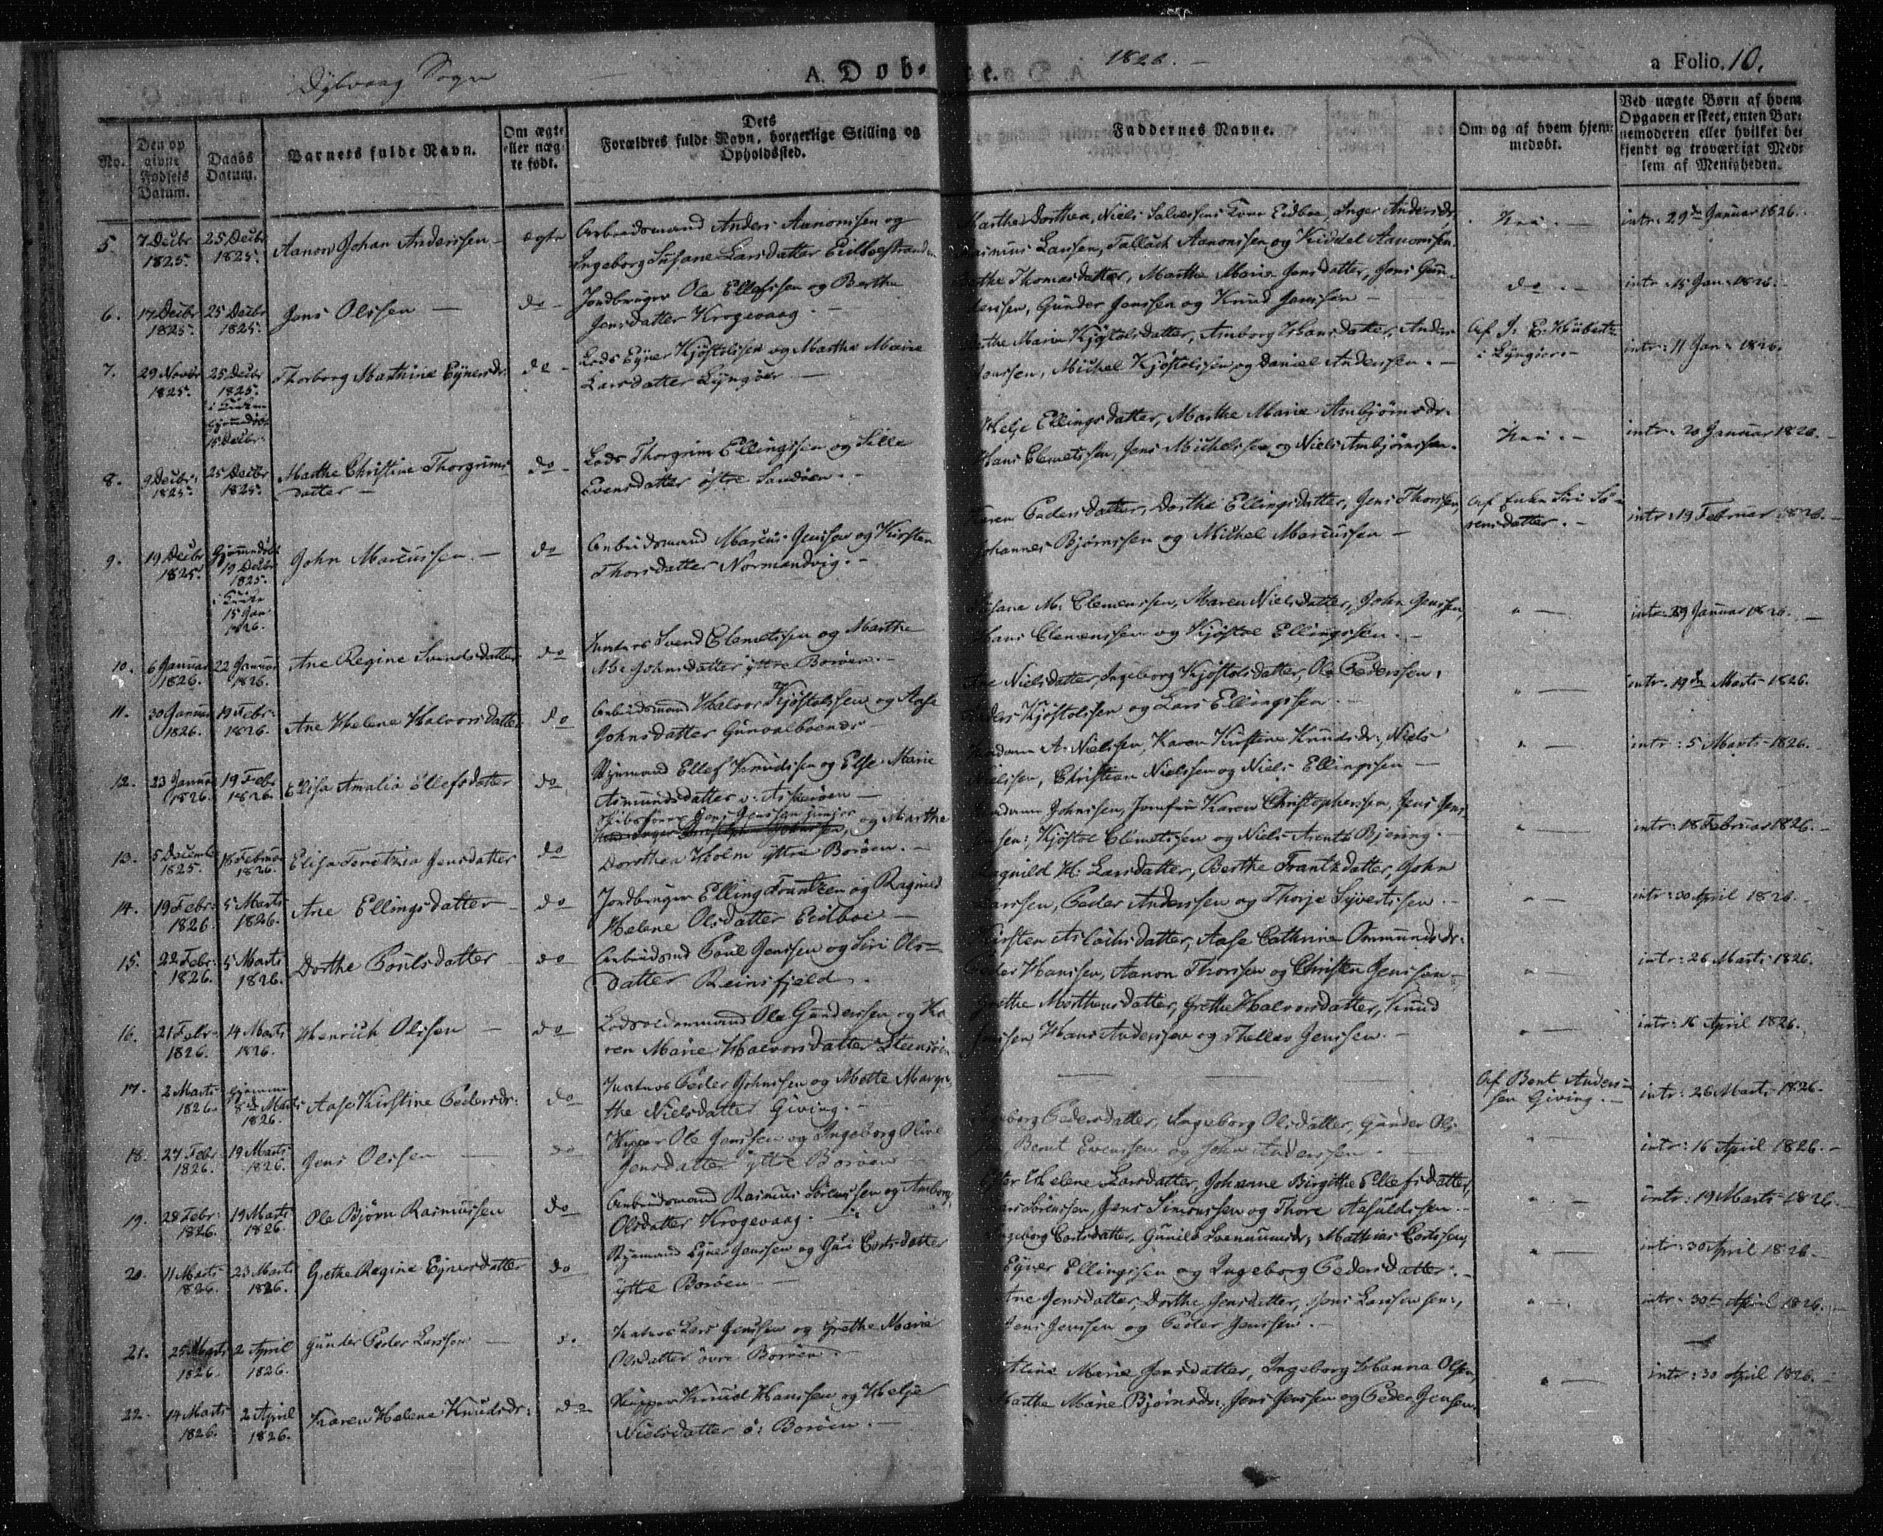 Dybvaag Sogn
A. Døbte.
1826.
a Folio. 10.
No.
Den opgivne Fødsels Datum.
Daabs Datum.
Barnets fulde Navn.
Om ægte eller uægte født.
Dets Forældres fulde Navn, borgerlige Stilling og Opholdssted.
Faddernes Navne.
Om og af hvem hjemmedøbt.
Ved uægte Børn af hvem Opgaven er skeet, enten Barnemoderen eller hvilket bekjendt og troværdigt Medlem af Menigheden.
5. 7 Decbr 1825. 25 Decbr 1825. Aanon Johan Anderssen ægte
Arbeidsmand Anders Aanonssen og
Ingeborg Susane Larsdatter Eidboestranden
Marthe Dorthea, Niels Salvessens Kone Eidboe, Inger Andersdr,
Rasmus Larssen, Tallach Aanonssen og Kiddel Aanonssen.
Nei. intr: 29de Januar 1826.
6. 17 Decbr 1825. 25 Decbr 1825. Jens Olssen do
Jordbruger Ole Ellefssen og Berthe
Jensdatter Krogevaag.
Berthe Thomasdatter, Marthe Marie Jensdatter, Jens Gunderssen, Gunder Jenssen og Knud Jenssen
do intr: 15 Jan: 1826.
7. 29 Novbr 1825. 25 Decbr 1825. i Kirken Hjemmedøbt 15 Decbr: Thorborg Mathine Eynersdr: do
Lods Eyner Kjøstolssen og Marthe Marie
Larsdatter Lyngøer
Marthe Marie Kjøstolsdatter, Amborg Hansdatter, Anders
Jonssen, Michel Kjøstolssen og Daniel Anderssen.
Af J. E. Hübert i Lyngøer intr: 11 Jan: 1826.
8. 9 Decbr: 1825. 25 Decbr 1825. Marthe Christine Thorgrimsdatter do
Lods Thorgrim Ellingssen og Sille
Evensdatter østre Sandøen.
Helje Ellingsdatter, Marthe Marie Ambjørnsdr:
Hans Clemetssen, Jens Michelssen og Niels Ambjørnssen.
Nei. intr: 20 Januar 1826.
9. 19 Decbr 1825. Hjemmedøbt 19 Decbr 1825. i Kirke 15 Jan 1826. John Marcussen. do
Arbeidsmand Marcus Jenssen og Kirsten
Thorsdatter Normandvig.
Karen Pedersdatter, Dorthe Ellingsdatter, Jens Thorssen,
Johannes Bjørnssen og Michel Marcussen
Af Enken Siri Sørensdatter. intr: 19 Februar 1826.
10. 6 Januar 1826. 22 Januar 1826. Ane Regine Svendsdatter do
Matros Svend Clemetssen og Marthe
Me: Johnsdatter yttre Borøen.
Susana M: Clemenssen, Maren Nielsdatter, John Jenssen,
Hans Clemenssen og Kjøstol Ellingssen.
intr: 29 Januar 1826.
11. 30 Januar 1826. 19 Febr: 1826. Ane Helene Halvorsdatter do
Arbeidsmand Halvor Kjøstolssen og Aase
Johnsdatter Gunvalboende
Ane Nielsdatter, Ingeborg Kjøstolsdatter, Ole Pederssen,
Anders Kjøstolssen og Lars Ellingssen.
intr: 19de Marts 1826.
12. 23 Januar 1826. 19 Febr 1826. Elisa Amalia Ellefsdatter do
Styrmand Ellef Knudssen og Else Marie
Asmundsdatter v: Askerøen
Madame A. Nielssen, Karen Kirstine Knudsdr:, Niels
Nielssen, Christian Nielssen og Niels Ellingssen
intr: 5 Marts 1826.
13. 5 Decemb 1825. 18 Februar 1826. Elisa Terotzia Jensdatter do
Skibsfører Jens Jenssen junior og Marthe
Dorothea Holm yttre Borøen.
Madame Johnssen, Jomfrue Karen Christopherssen, Jens Jenssen, Kjøstol Clemetssen og Niels Arentz Bjering.
intr: 18 Februar 1826.
14. 19 Febr: 1826. 5 Marts 1826. Ane Ellingsdatter do
Jordbruger Elling Frantzen og Ragnild
Helene Olsdatter Eidboe
Ragnild H: Larsdatter, Berthe Frantzdatter, John
Larssen, Peder Anderssen og Thorje Syvertssen.
intr: 30 April 1826.
15. 22 Febr: 1826. 5 Marts 1826. Dorthe Poulsdatter do
Arbeidsmd Poul Jenssen og Siri Olsdatter Reinsfjeld
Kirsten Aslachsdatter, Aase Cathrine Osmundsdr:
Peder Hanssen, Aanon Thorssen og Christen Jenssen
intr: 26 Marts 1826.
16. 21 Febr. 1826. 14 Marts 1826. Henrich Olssen do
Lodsoldermand Ole Gunderssen og Karen Marie Halvorsdatter Steensøen
Grethe Morthensdatter, Grethe Halvorsdatter, Knud
Jenssen Hans Anderssen og Thellev Jenssen.
intr: 16 April 1826.
17. 2 Marts 1826. Hjemme 8de Marts 1826. Aase Kirstine Pedersdr: do
Matros Peder Johnssen og Mette Margrethe Nielsdatter Giving.
Af Bent Anderssen Giving. intr: 26 Marts 1826.
18. 27 Febr 1826. 19 Marts 1826. Jens Olssen do
Skipper Ole Jenssen og Ingeborg Oline
Jensdatter yttre Borøen
Amborg Pedersdatter, Ingeborg Olsdatter, Gunder Olssen Bernt Evenssen og John Anderssen.
intr: 16 April 1826.
19. 28 Febr: 1826. 19 Marts 1826. Ole Bjørn Rasmussen do
Arbeidsmand Rasmus Sørenssen og Amborg
Olsdatter Krogevaag.
Helene Larsdatter, Johanne Birgithe Ellefsdatter,
Lars Sørenssen, Jens Simonssen og Thore Aasuldssen.
intr: 19 Marts 1826.
20. 11 Marts 1826. 23 Marts 1826. Grethe Regine Eynersdatter do
Styrmand Eyner Jenssen og Guri Cortsdatter
yttre Borøen
Ingeborg Cortsdatter, Gunild Svenumsdr, Mathias Cortssen,
Eyner Ellingssen og Ingeborg Pedersdatter.
intr: 30 April 1826.
21. 25 Marts 1826. 2 April 1826. Gunder Peder Larssen do
Matros Lars Jenssen og Grethe Marie
Olsdatter øvre Borøen.
Ane Jensdatter, Dorthe Jensdatter, Jens Larssen sen:,
Jens Jenssen og Peder Jenssen.
intr: 30te April 1826.
22. 14 Marts 1826. 2 April 1826. Karen Helene Knudsdr: do
Skipper Knud Hanssen og Helje
Nielsdatter ø: Borøen.
Marie Jensdatter, Ingeborg Hanna Olsen,
Marthe Marie Bjørnsdr:, Jens Jenssen og Peder Jenssen
intr: 30 April 1826.